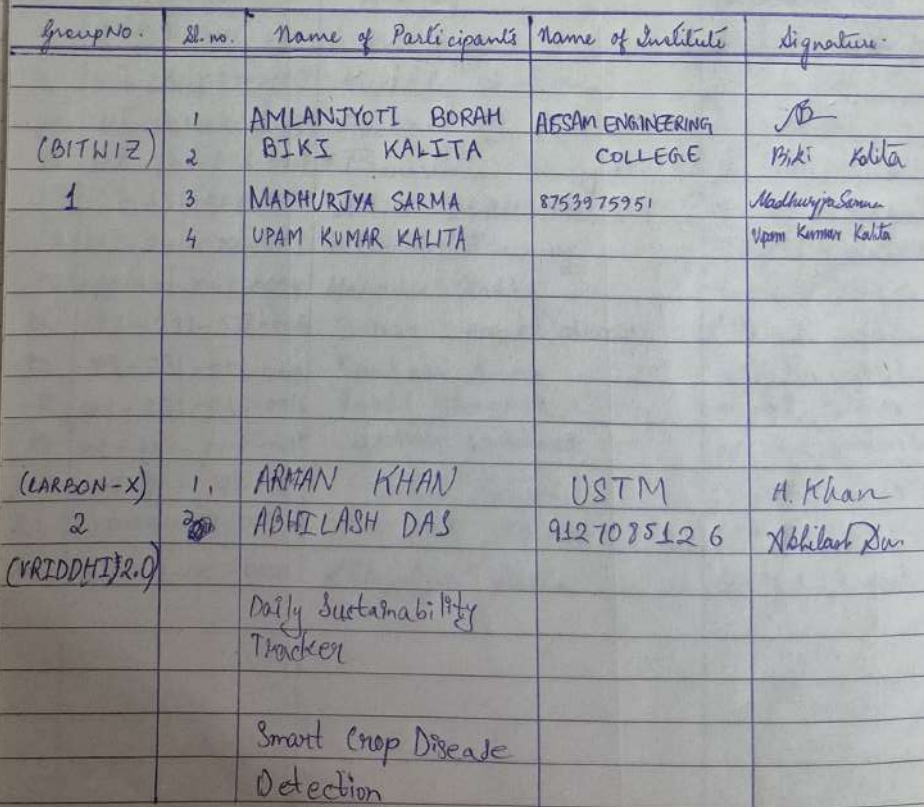 Group No. Sl. no. Name of Participants Name of Institute Signature
1 AMLANJYOTI BORAH ASSAM ENGINEERING
(BITWIZ) 2 BIKI KALITA COLLEGE Biki Kalita
1 3 MADHURJYA SARMA 8753975951 Madhurjya Sarma
4 UPAM KUMAR KALITA Upam Kumar Kalita
(CARBON-X) 1. ARMAN KHAN USTM A. Khan
2 2 ABHILASH DAS 9127085126 Abhilash Das
(VRIDDHI) 2.0)
Daily Sustainability
Tracker
Smart Crop Disease
Detection